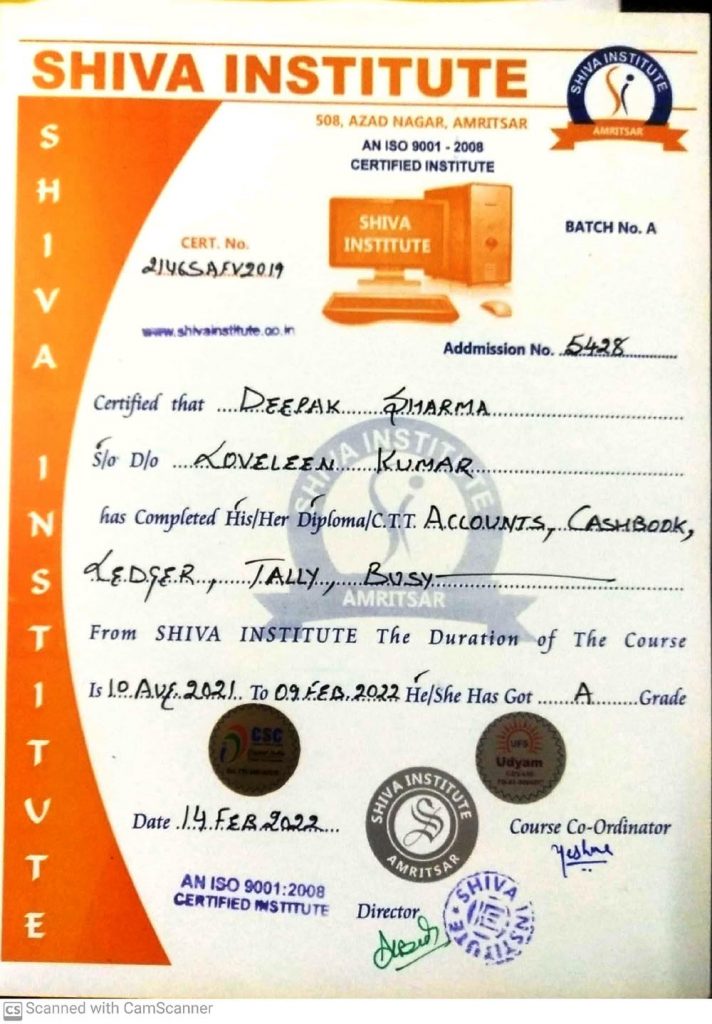 SHIVA INSTITUTE
SHIVA INSTITUTE
AMRITSAR
508, AZAD NAGAR, AMRITSAR
AN ISO 9001 - 2008
CERTIFIED INSTITUTE
SHIVA INSTITUTE
SHIVA
INSTITUTE
BATCH No. A
CERT. No.
2146SAFV2019
www.shivainstitute.co.in
Addmission No. 5428
Certified that DEEPAK SHARMA
S/o D/o LOVELEEN KUMAR
has Completed His/Her Diploma/C.T.T. ACCOUNTS, CASHBOOK,
LEDGER, TALLY, BUSY
SHIVA INSTITUTE
AMRITSAR
From SHIVA INSTITUTE The Duration of The Course
Is 10 AUG. 2021. To 09 FEB. 2022 He/She Has Got A Grade
CSC
UFS
Udyam
Date 14 FEB 2022
SHIVA INSTITUTE
AMRITSAR
Course Co-Ordinator
AN ISO 9001:2008
CERTIFIED INSTITUTE
Director
SHIVA INSTITUTE
CS Scanned with CamScanner